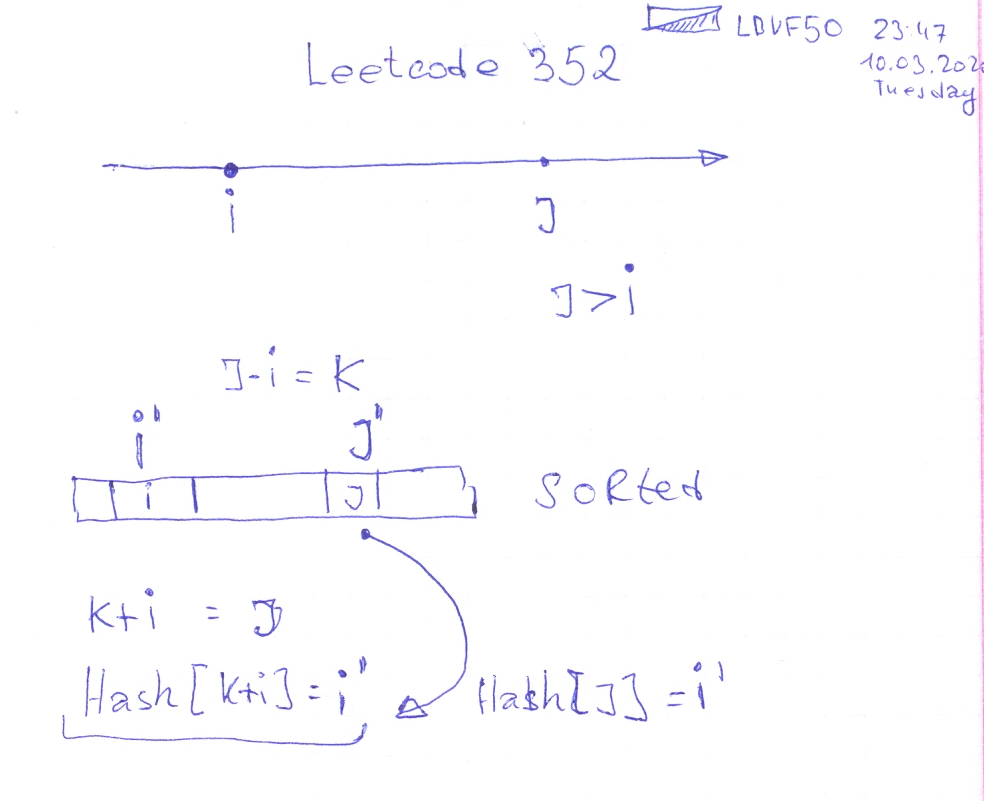 LDVF50 23:47
10.03.202
Tuesday
Leetcode 352
i J
J>i
J-i = K
i" J"
i J SORted
K+i = J
Hash[K+i]=i" Hash[J]=i'